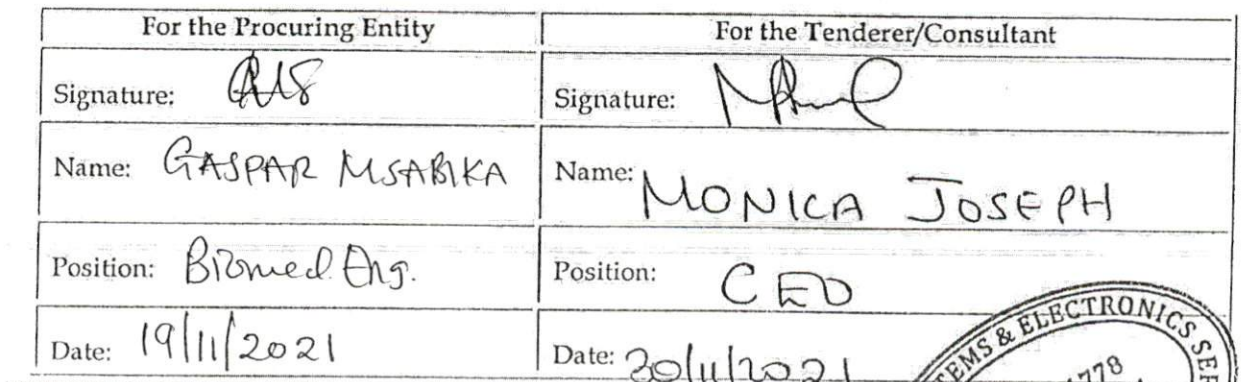 For the Procuring Entity
For the Tenderer/Consultant
Signature:
Signature:
Name: GASPAR MSABIKA
Name: MONICA JOSEPH
Position: Biomed Eng.
Position: CEO
Date: 19/11/2021
Date: 30/11/2021
TEMS & ELECTRONICS SER
778